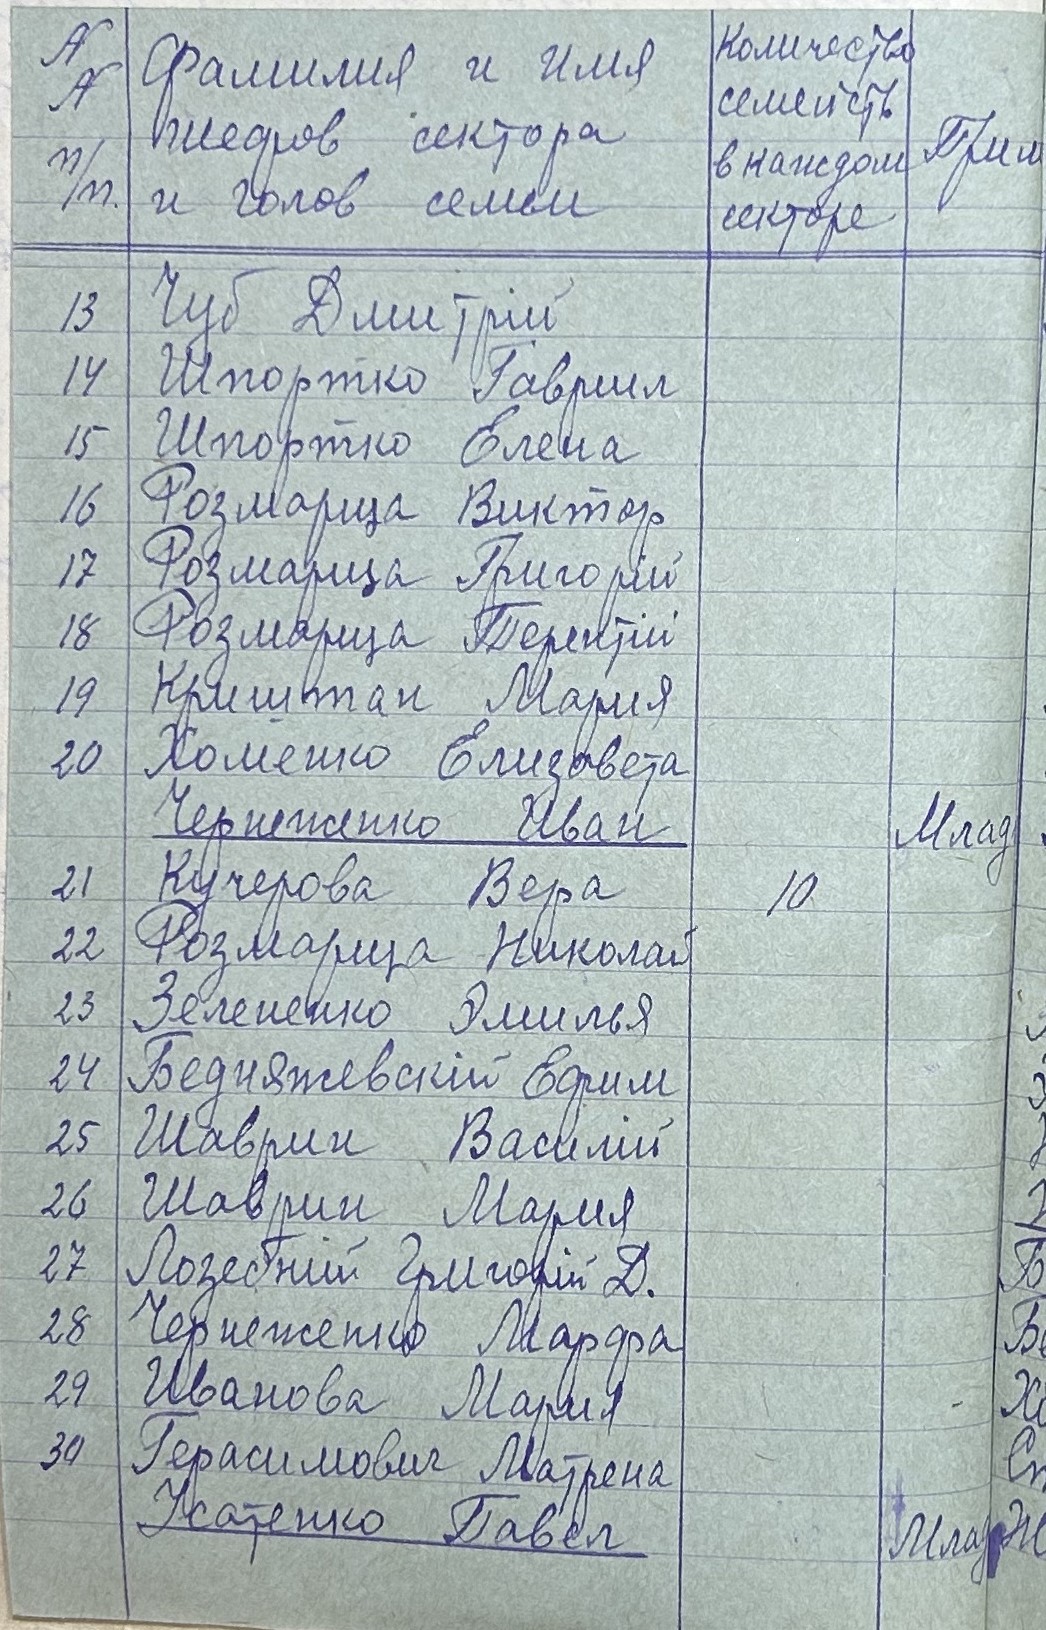 N N п/п.
Фамилия и имя
шефов сектора
и голов семьи
Количество
семейств
в каждом
секторе
Прим
13 Чуб Дмитрій
14 Шпортко Гавриил
15 Шпортко Елена
16 Розмарица Виктор
17 Розмарица Григорій
18 Розмарица Терентій
19 Криштан Мария
20 Хоменко Елизавета
Чернеженко Иван Млад
21 Кучерова Вера 10
22 Розмарица Николай
23 Зелененко Эмилья
24 Бедняжевскій Ефрим
25 Шаврин Василій
26 Шаврин Мария
27 Григорій Д.
28 Чернеженко Марфа
29 Иванова Мария
30 Герасимович Матрена
Усатенко Павел Млад